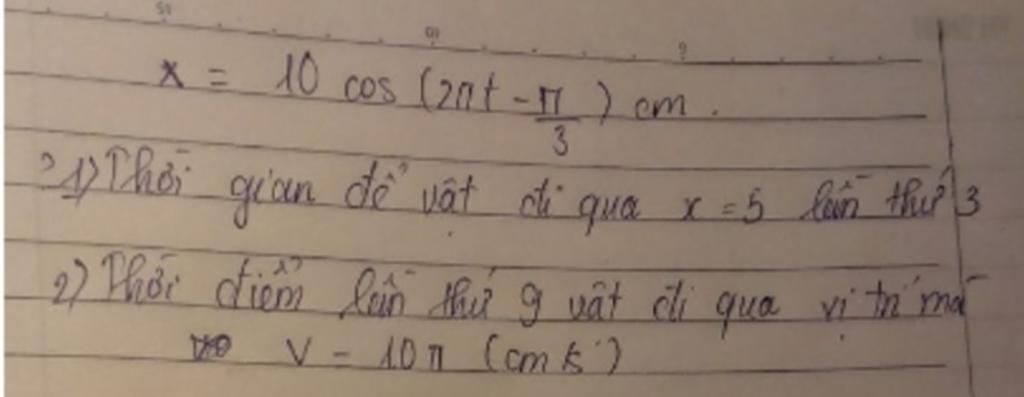 x = 10 cos (2πt - π/3) cm.
? 1) Thời gian để vật đi qua x = 5 lần thứ 3
2) Thời điểm lần thứ 9 vật đi qua vị trí mà
v = 10π (cm/s)